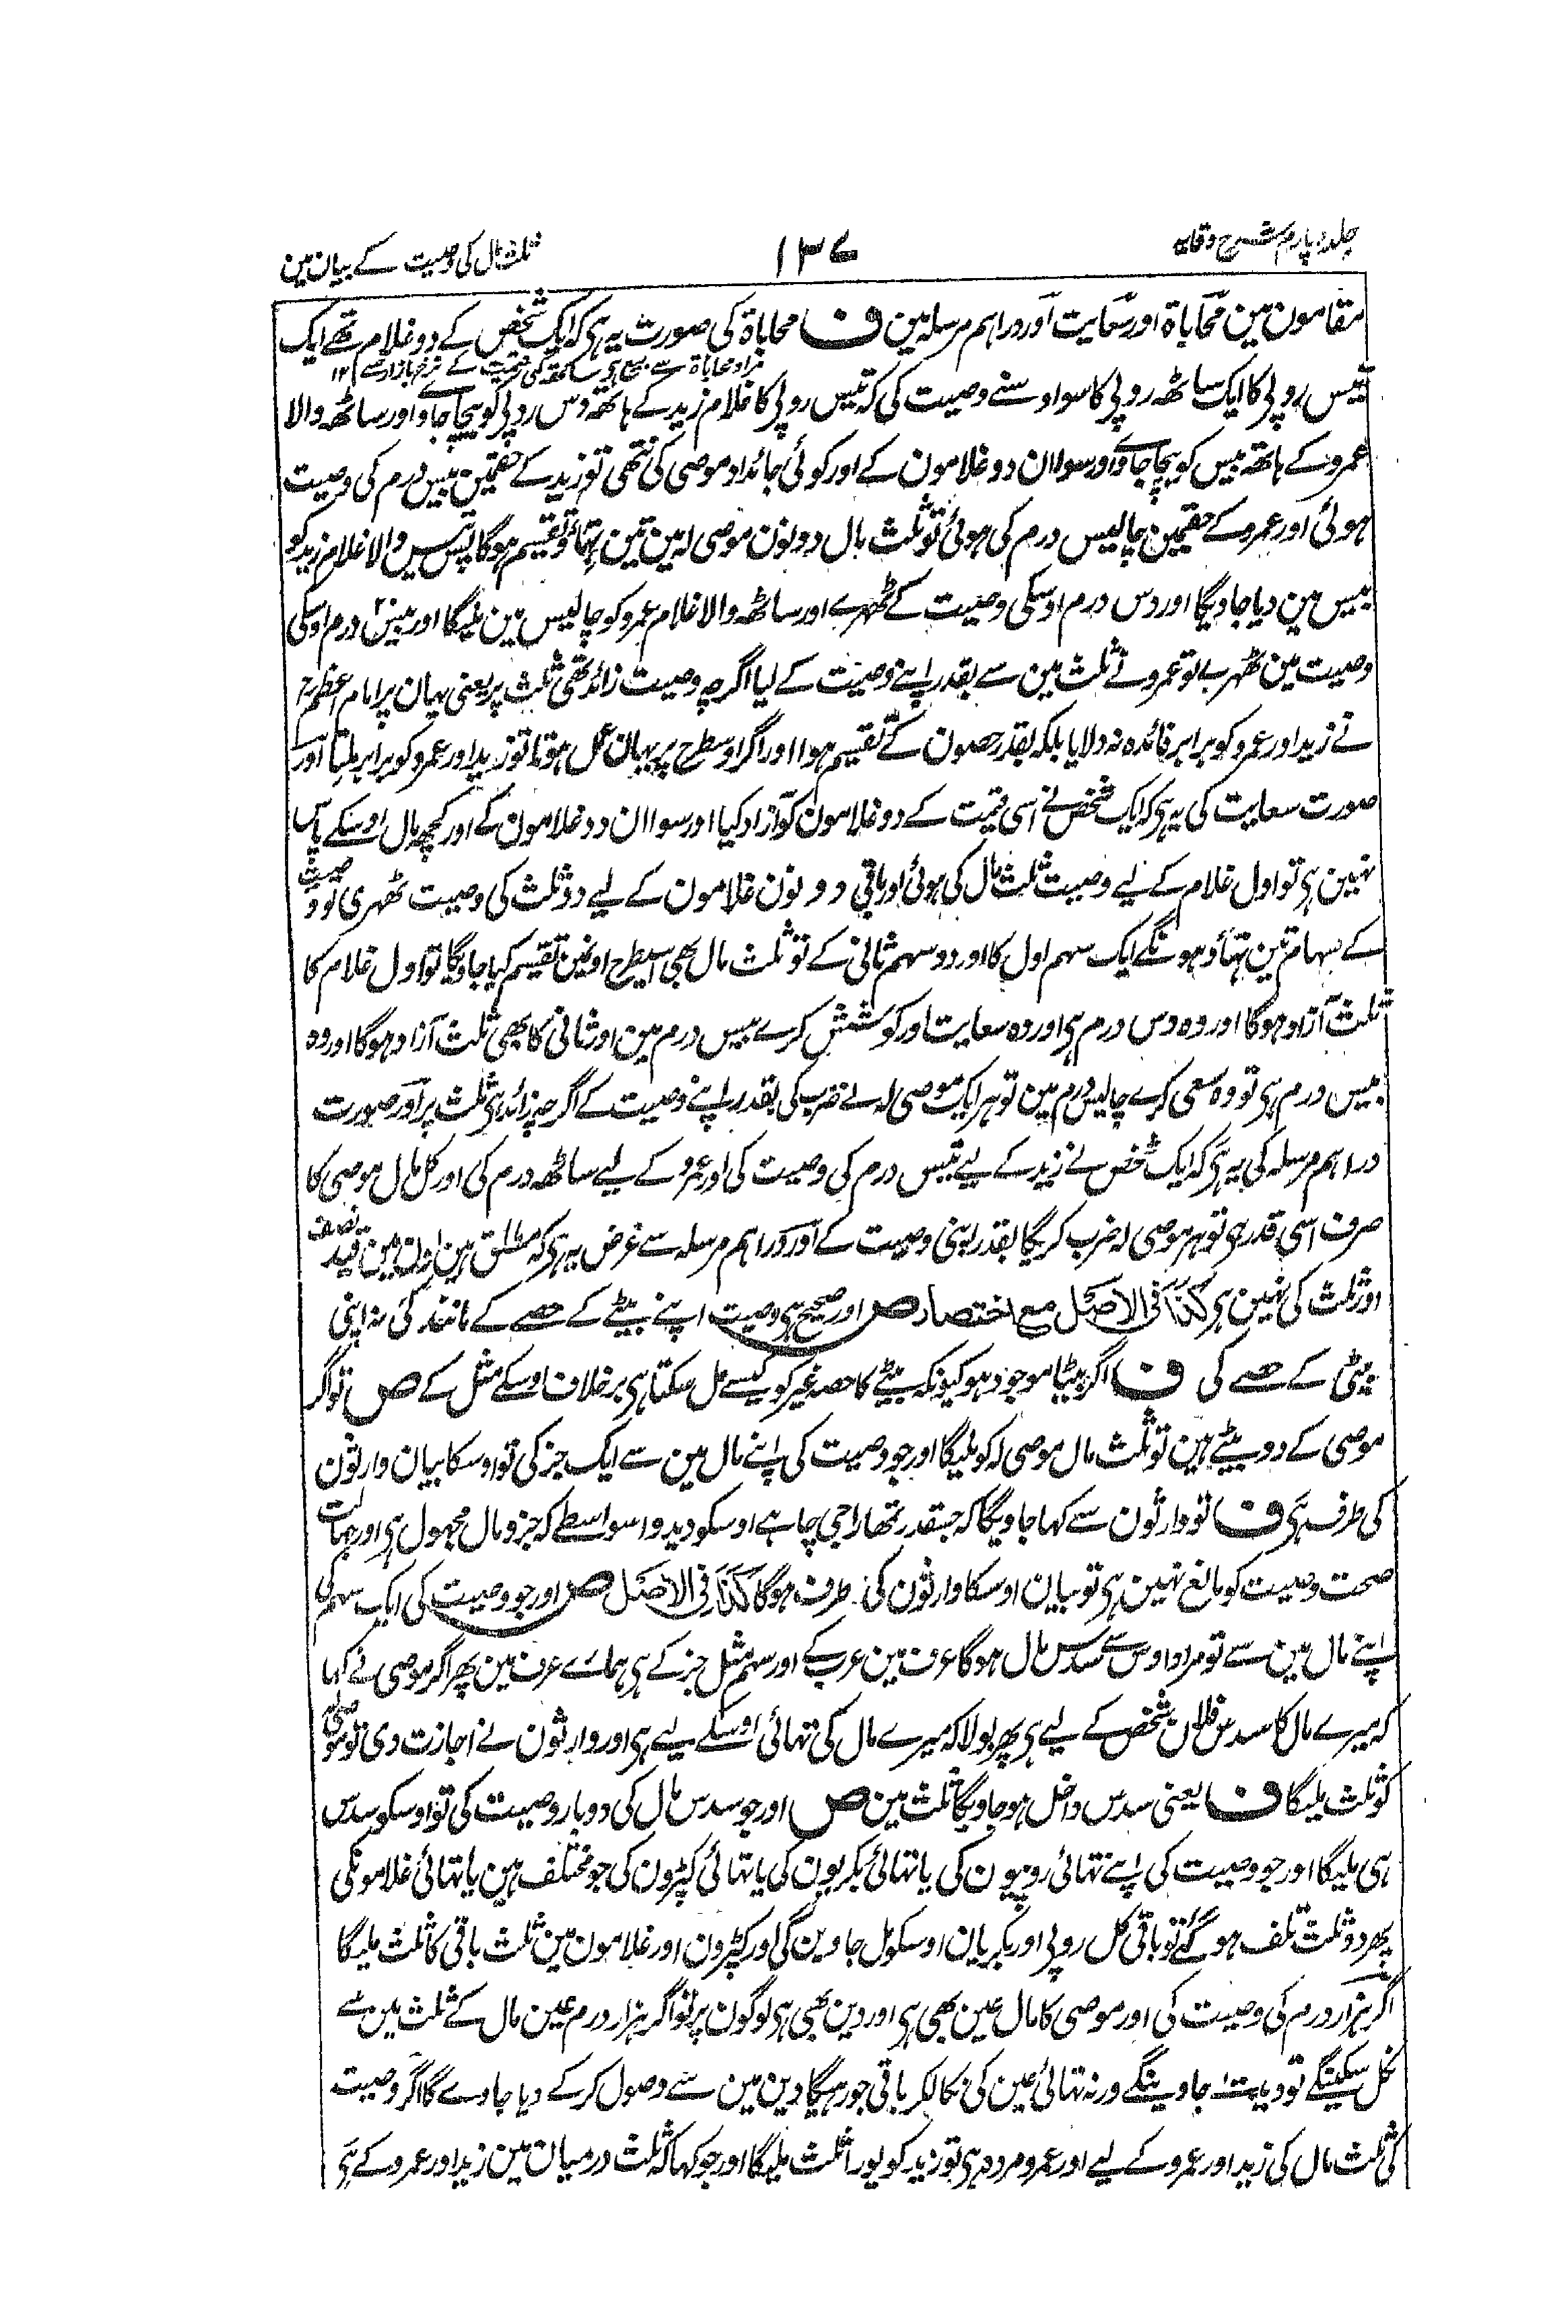 جلد چہارم شرح وقایہ
۱۳۷
ثلث مال کی وصیت کے بیان مین
مقامون مین محاباۃ اور سعایت اور دراہم مرسلہ مین ف محاباۃ کی صورت یہ ہی کہ ایک شخص کے دو غلام تھے ایک
مراد محاباۃ سے بیع ہی ساتھ کمی قیمت کے نرخ بازار سے ۱۲
تیس روپی کا ایک ساٹھ روپی کا سو اوسنے وصیت کی کہ تیس روپی کا غلام زید کے ہاتھ دس روپی کو بیچا جاوے اور ساٹھ والا
عمرو کے ہاتھ بیس کو بیچا جاوے اور سوا ان دو غلامون کے اور کوئی جائداد موصی کی نتھی تو زید کے حقمین بیس درم کی وصیت
ہوئی اور عمرو کے حقمین چالیس درم کی ہوئی تو ثلث مال دونون موصی لہ مین تین تہاؤ تقسیم ہوگا پس تیس والا غلام زید کو
بیس مین دیا جاویگا اور دس درم اوسکی وصیت کے ٹھہرے اور ساٹھ والا غلام عمرو کو چالیس مین ملیگا اور بیس درم اوسکی
وصیت مین ٹھہرے تو عمرو نے ثلث مین سے بقدر اپنے وصیت کے لیا اگرچہ وصیت زائد تھی ثلث پر یعنی یہان پر امام اعظم رح
نے زید اور عمرو کو برابر فائدہ نہ دلایا بلکہ بقدر حصون کے تقسیم ہوا اور اگر اوسطرح پر یہان عمل ہوتا تو زید اور عمرو کو برابر ملتا اور
صورت سعایت کی یہ ہی کہ ایک شخص نے اسی قیمت کے دو غلامون کو آزاد کیا اور سوا ان دو غلامون کے اور کچھ مال اوسکے پاس
نہین ہی تو اول غلام کے لیے وصیت ثلث مال کی ہوئی اور باقی دونون غلامون کے لیے دو ثلث کی وصیت ٹھہری تو وصیت
کے سہام تین تہاؤ ہونگے ایک سہم اول کا اور دو سہم ثانی کے تو ثلث مال بھی اسیطرح اونمین تقسیم کیا جاویگا تو اول غلام کا
ثلث آزاد ہوگا اور وہ دس درم ہی اور وہ سعایت اور کوشش کرے بیس درم مین اور ثانی کا بھی ثلث آزاد ہوگا اور وہ
بیس درم ہی تو وہ سعی کرے چالیس درم مین تو ہر ایک موصی لہ نے ضرب کی بقدر اپنے وصیت کے اگرچہ زائد ہی ثلث پر اور صورت
دراہم مرسلہ کی یہ ہی کہ ایک شخص نے زید کے لیے تیس درم کی وصیت کی اور عمرو کے لیے ساٹھ درم کی اور کل مال موصی کا
صرف اسی قدر ہی تو ہر موصی لہ ضرب کریگا بقدر اپنی وصیت کے اور دراہم مرسلہ سے غرض یہ ہی کہ مطلق ہین اونمین قید نصف
اور ثلث کی نہین ہی کذا فی الاصل مع اختصار ص اور صحیح ہی وصیت اپنے بیٹے کے حصے کے مانند کی نہ اپنی
بیٹی کے حصے کی ف اگر بیٹا موجود ہو کیونکہ بیٹے کا حصہ غیر کو کیسے مل سکتا ہی برخلاف اوسکے مثل کے ص تو اگر
موصی کے دو بیٹے ہین تو ثلث مال موصی لہ کو ملیگا اور جو وصیت کی اپنے مال مین سے ایک جز کی تو اوسکا بیان وارثون
کی طرف ہی ف تو وارثون سے کہا جاویگا کہ جسقدر تمھارا جی چاہے اوسکو دیدو اسواسطے کہ جزو مال مجہول ہی اور جہالت
صحت وصیت کو مانع نہین ہی تو بیان اوسکا وارثون کی طرف ہوگا کذا فی الاصل ص اور جو وصیت کی ایک سہم کی
اپنے مال مین سے تو مراد اوس سے سدس مال ہوگا عرف مین عرب کے اور سہم مثل جز کے ہی ہمارے عرف مین پھر اگر موصی نے کہا
کہ میرے مال کا سدس فلان شخص کے لیے ہی پھر بولا کہ میرے مال کی تہائی اوسکے لیے ہی اور وارثون نے اجازت دی تو موصی لہ
کو ثلث ملیگا ف یعنی سدس داخل ہو جاویگا ثلث مین ص اور جو سدس مال کی دوبار وصیت کی تو اوسکو سدس
ہی ملیگا اور جو وصیت کی اپنے تہائی روپیون کی یا تہائی بکریون کی یا تہائی کپڑون کی جو مختلف ہین یا تہائی غلامونکی
پھر دو ثلث تلف ہو گئے تو باقی کل روپی اور بکریان اوسکو مل جاوین گی اور کپڑون اور غلامون مین ثلث باقی کا ثلث ملیگا
اگر ہزار درم کی وصیت کی اور موصی کا مال عین بھی ہی اور دین بھی ہی لوگون پر تو اگر ہزار درم عین مال کے ثلث مین سے
نکل سکینگے تو دیے جاوینگے ورنہ تہائی عین کی نکالکر باقی جو رہیگا دین مین سے وصول کر کے دیا جاوے گا اگر وصیت
کی ثلث مال کی زید اور عمرو کے لیے اور عمرو مردہ ہی تو زید کو پورا ثلث ملیگا اور جو کہا کہ ثلث درمیان مین زید اور عمرو کے ہی